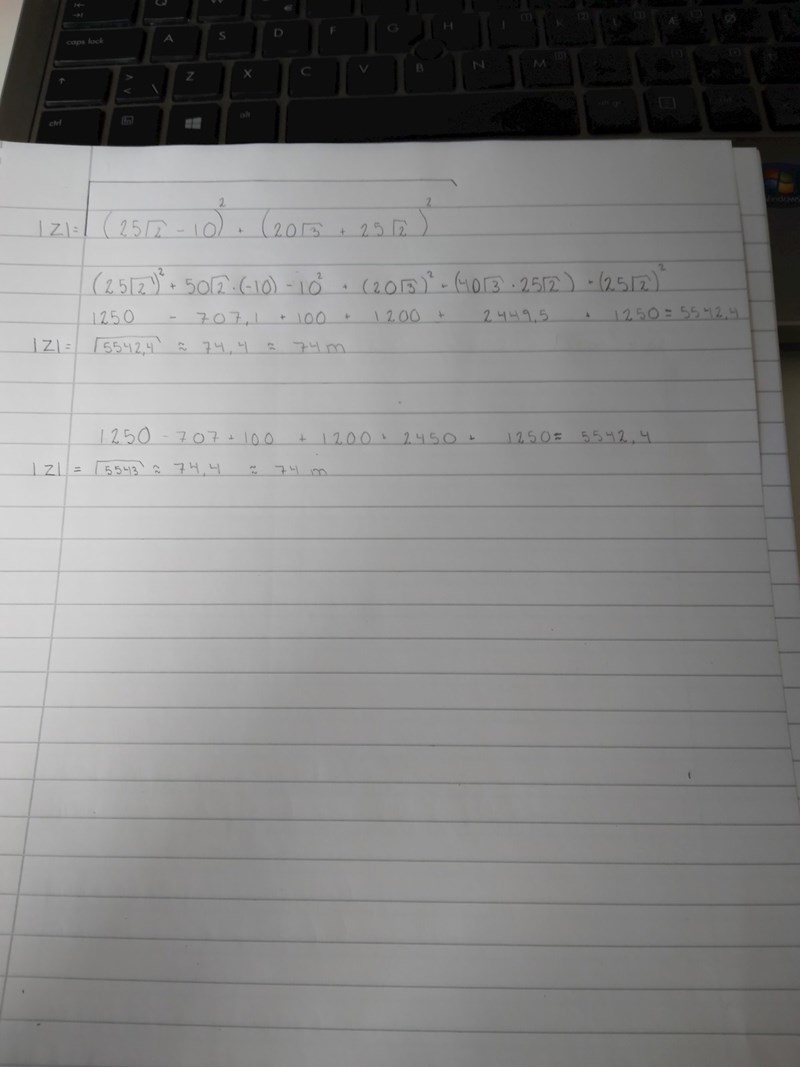 Q
caps lock A S D F G H J K L Æ Ø
> < \ Z X C V B N M
ctrl alt
|Z| = √(25√2 - 10)² + (20√3 + 25√2)²
(25√2)² + 50√2 · (-10) - 10² + (20√3)² + (40√3 · 25√2) + (25√2)²
1250 - 707,1 + 100 + 1200 + 2449,5 + 1250 = 5542,4
|Z| = √5542,4 ≈ 74,4 ≈ 74 m
1250 - 707 + 100 + 1200 + 2450 + 1250 = 5542,4
|Z| = √5543 ≈ 74,4 ≈ 74 m